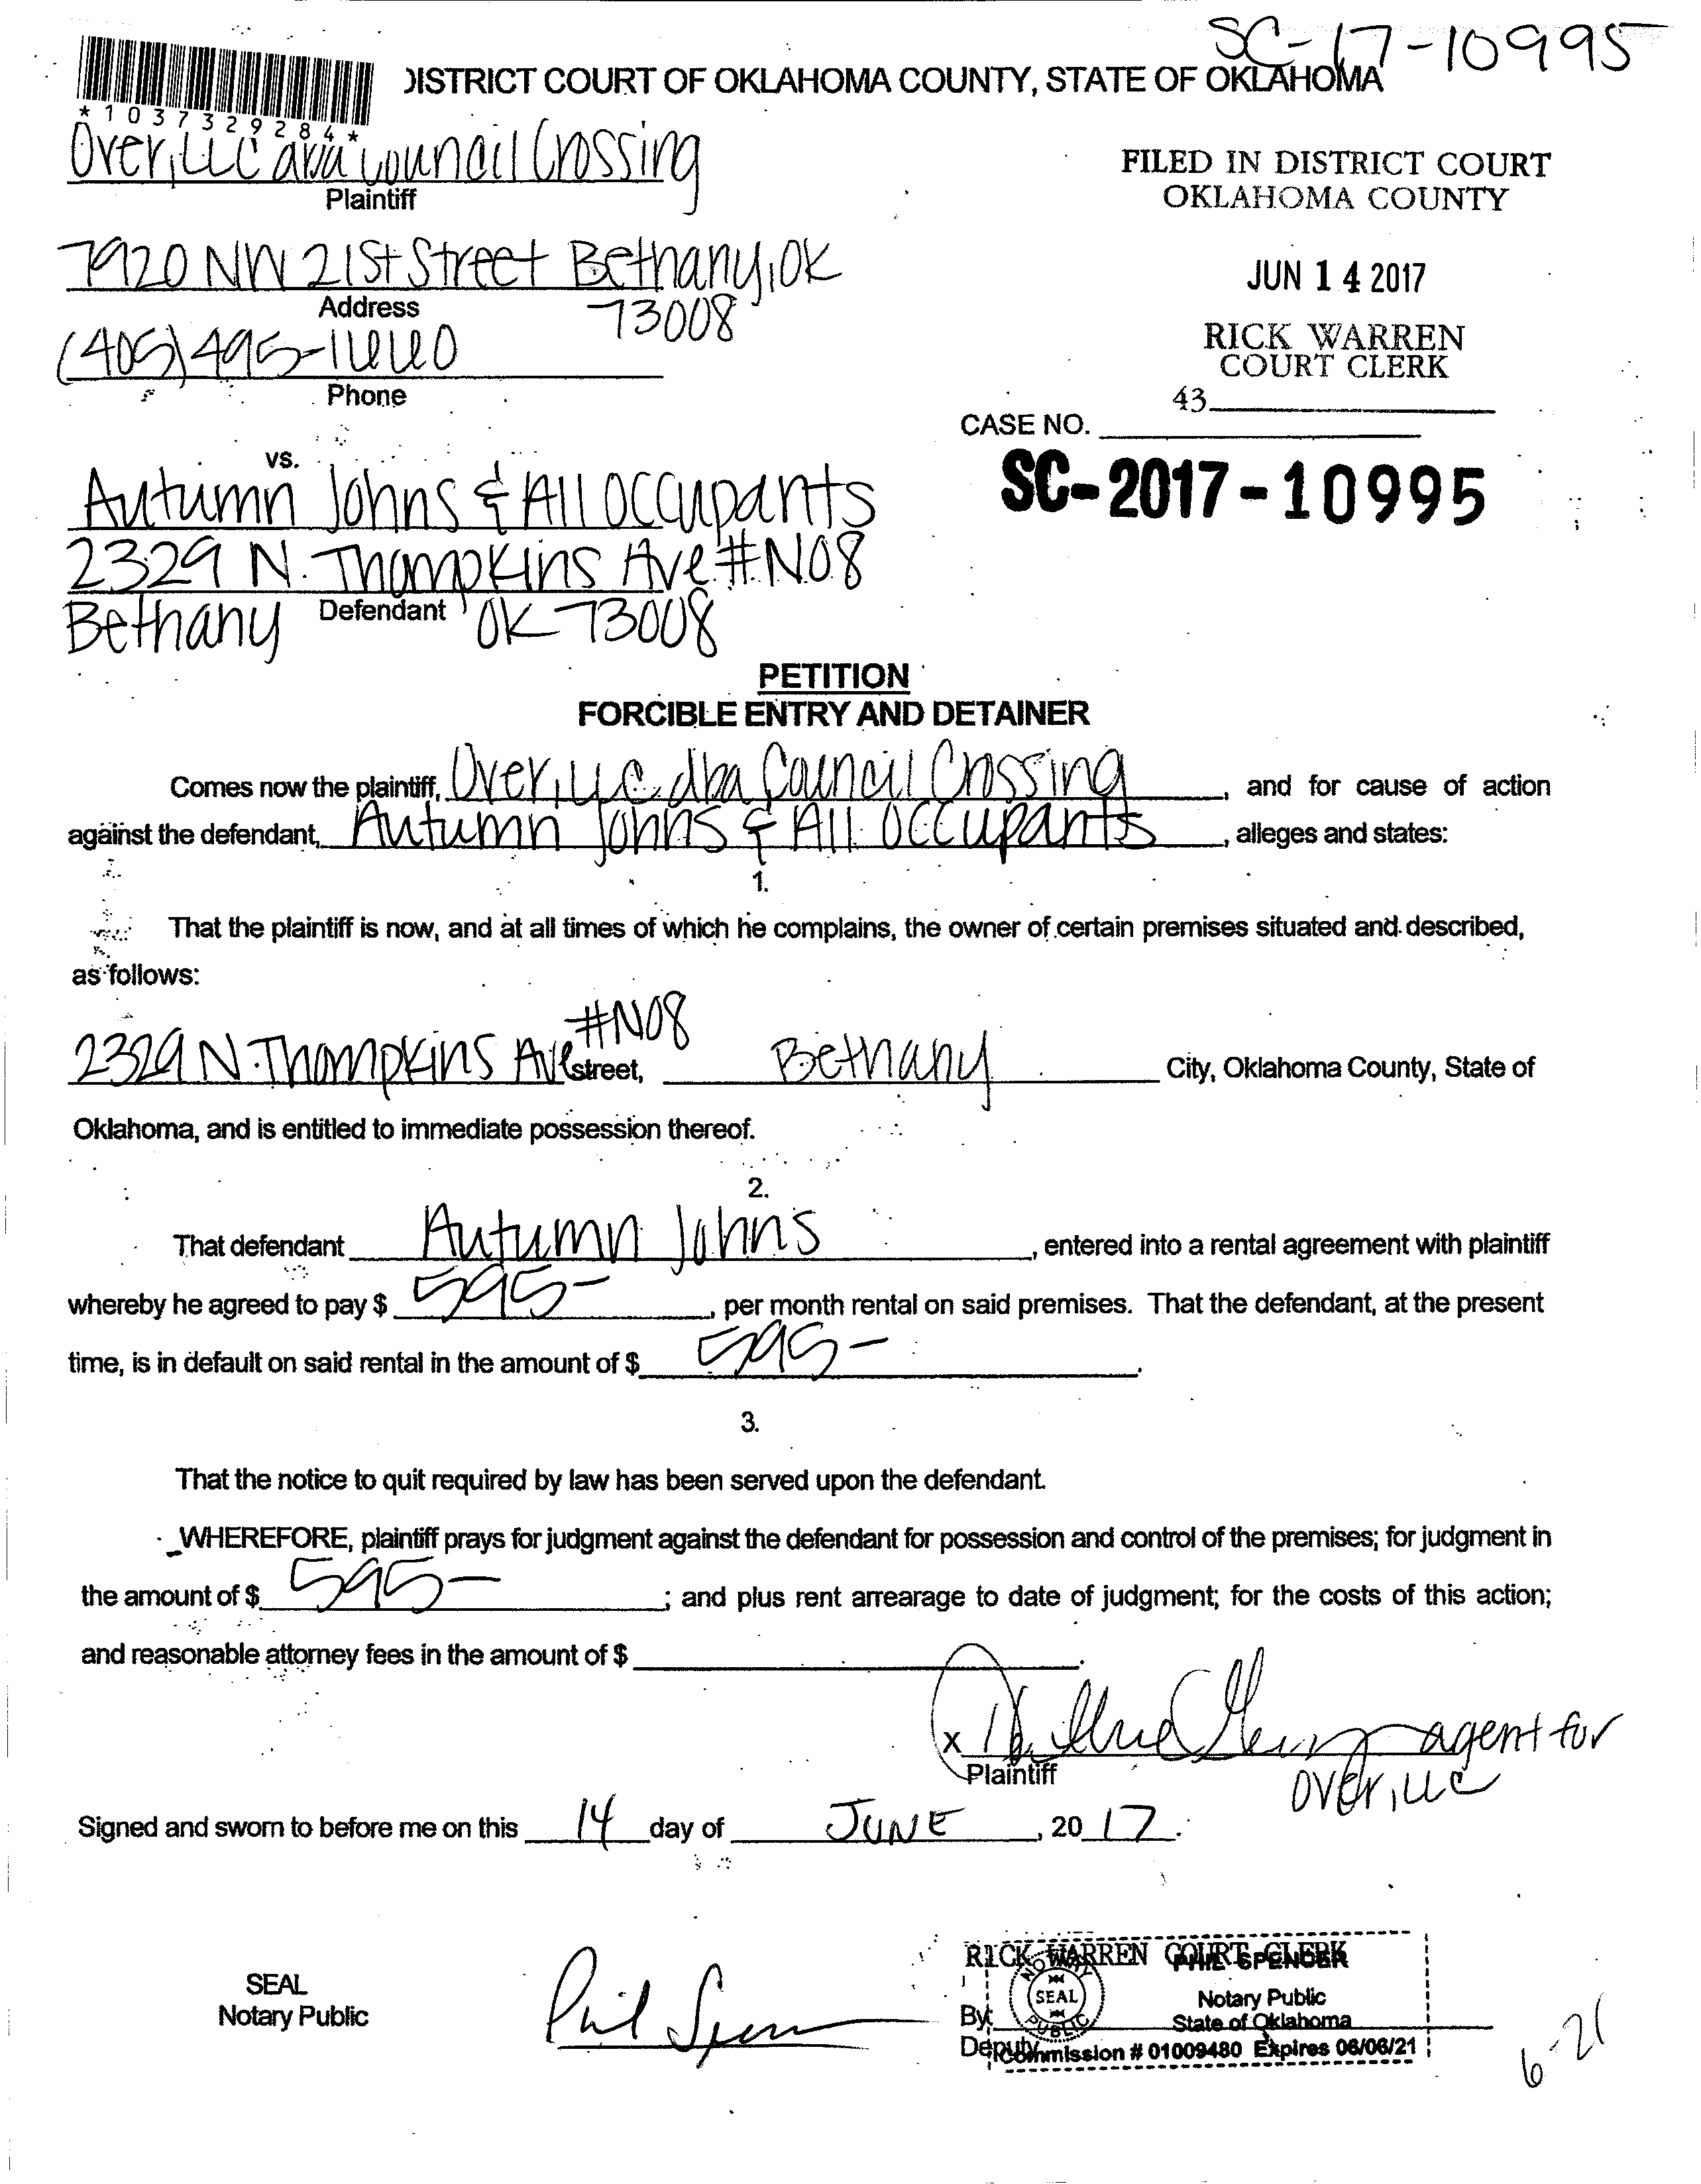 SC-17-10995
DISTRICT COURT OF OKLAHOMA COUNTY, STATE OF OKLAHOMA
*1037329284*
Over, LLC dba Council Crossing
Plaintiff
FILED IN DISTRICT COURT
OKLAHOMA COUNTY
7920 NW 21st Street Bethany, OK
Address
73008
JUN 14 2017
(405) 495-1660
Phone
RICK WARREN
COURT CLERK
43
CASE NO.
SC-2017-10995
vs.
Autumn Johns & All Occupants
2329 N. Thompkins Ave #N08
Defendant
Bethany OK 73008
PETITION
FORCIBLE ENTRY AND DETAINER
Comes now the plaintiff, Over, LLC dba Council Crossing, and for cause of action
against the defendant, Autumn Johns & All Occupants, alleges and states:
1.
That the plaintiff is now, and at all times of which he complains, the owner of certain premises situated and described,
as follows:
#N08
2329 N. Thompkins Ave street, Bethany City, Oklahoma County, State of
Oklahoma, and is entitled to immediate possession thereof.
2.
That defendant Autumn Johns, entered into a rental agreement with plaintiff
whereby he agreed to pay $ 595-, per month rental on said premises. That the defendant, at the present
time, is in default on said rental in the amount of $ 595-.
3.
That the notice to quit required by law has been served upon the defendant.
WHEREFORE, plaintiff prays for judgment against the defendant for possession and control of the premises; for judgment in
the amount of $ 595-; and plus rent arrearage to date of judgment; for the costs of this action;
and reasonable attorney fees in the amount of $ .
x agent for
Plaintiff
Over, LLC
Signed and sworn to before me on this 14 day of JUNE, 20 17.
RICK WARREN COURT CLERK
PHIL SPENCER
SEAL
Notary Public
Phil Spencer
NOTARY PUBLIC
SEAL
Notary Public
By:
State of Oklahoma
Deputy
Commission # 01009480 Expires 06/06/21
6-21